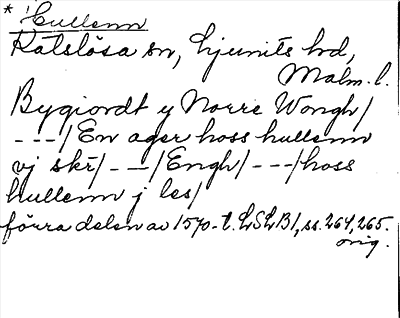 * Hullenn
Katslösa sn, Ljunits hd,
Malm. l.
Bygiordt y Norre Wongh/
---/En ager hoss hullenn
vj skr/---/Engh/---/hoss
hullenn j les/
förra delen av 1570-t. LSLB1, ss. 264, 265.
orig.